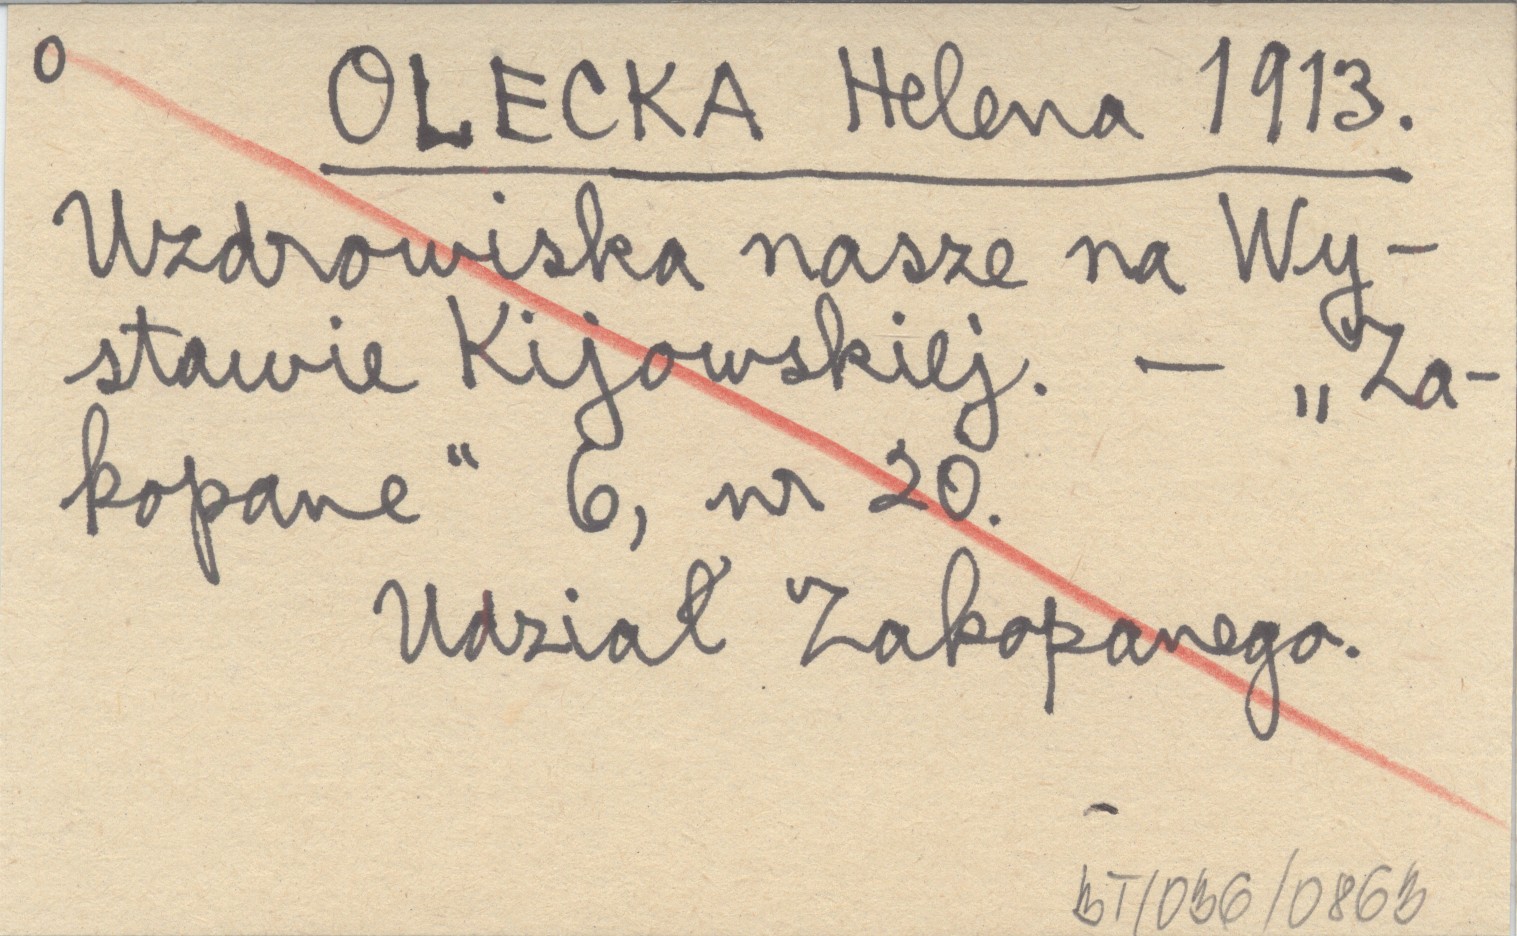 O OLECKA Helena 1913.
Uzdrowiska nasze na Wy-
stawie Kijowskiej. — „Za-
kopane“ 6, nr 20.
Udział Zakopanego.
BT/036/0863